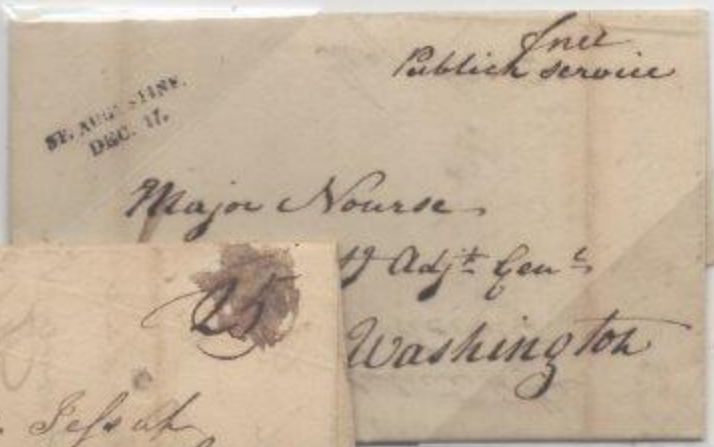 free
Publick service
ST. AUGUSTINE.
DEC. 17.
Major Nourse
Adjt Genl
Washington
25